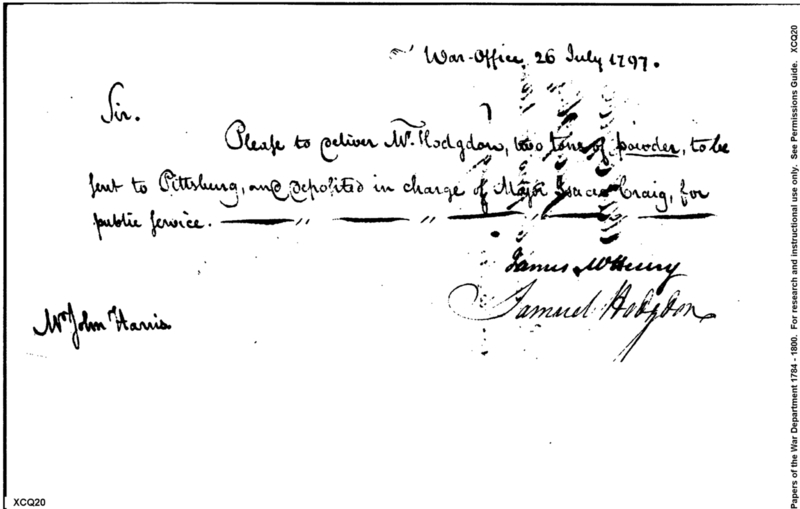 War-Office, 26 July 1797.
Sir.
Please to deliver Mr. Hodgdon, two tons of powder, to be
sent to Pittsburg, and deposited in charge of Major Isaac Craig, for
public service.
James McHenry
Samuel Hodgdon
Mr John Harris
XCQ20
Papers of the War Department 1784 - 1800. For research and instructional use only. See Permissions Guide. XCQ20